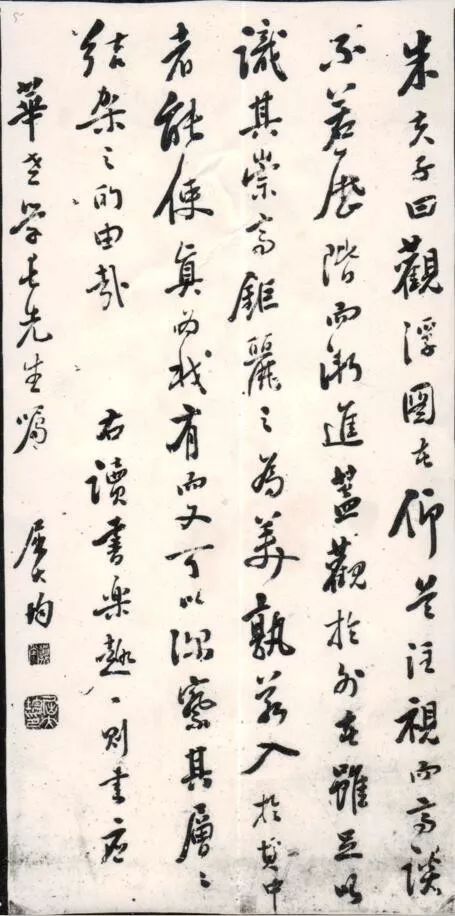 朱夫子曰觀浮圖者仰首注視而高談
不若歷階而漸進蓋觀於外者雖足以
識其崇高鉅麗之為美孰若入於其中
者能使真為我有而又可以深察其層々
結架之所由哉 右讀書樂趣一則書應
華老學長先生囑 屈大均